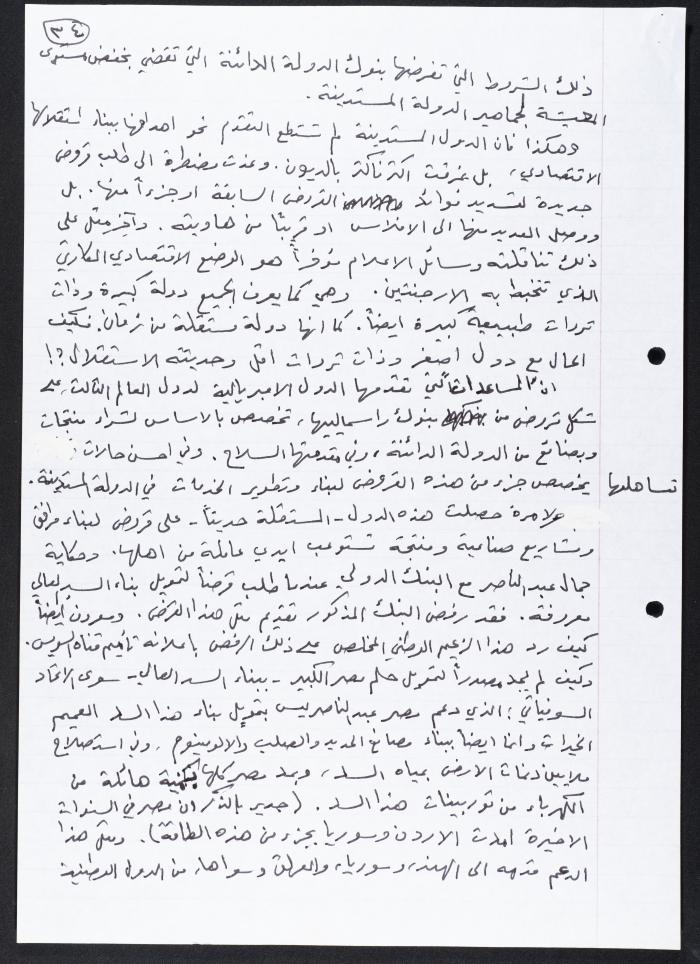 ٣٤
ذلك الشروط التي تفرضها بنوك الدولة الدائنة التي تقضي بخفض مستوى
المعيشة لجماهير الدولة المستدينة.
وهكذا فان الدول المستدينة لم تستطع التقدم نحو اهدافها ببناء استقلالها
الاقتصادي، بل غرقت اكثر فاكثر بالديون. وغدت مضطرة الى طلب قروض
جديدة لتسديد فوائد القروض السابقة او جزءاً منها. بل
ووصل العديد منها الى الافلاس او قريباً من هاويته. وآخر مثل على
ذلك تناقلته وسائل الاعلام مؤخراً هو الوضع الاقتصادي الكارثي
الذي تتخبط به الارجنتين. وهي كما يعرف الجميع دولة كبيرة وذات
ثروات طبيعية كبيرة ايضاً. كما انها دولة مستقلة من زمان. فكيف
الحال مع دول اصغر وذات ثروات اقل وحديثة الاستقلال؟!
ان "المساعدات" التي تقدمها الدول الامبريالية لدول العالم الثالث، على
شكل قروض من بنوك راسمالييها، تخصص بالاساس لشراء منتجات
وبضائع من الدولة الدائنة، وفي مقدمتها السلاح. وفي احسن حالات
تساهلها
يخصص جزء من هذه القروض لبناء وتطوير الخدمات في الدولة المستدينة.
ولامرة حصلت هذه الدول - المستقلة حديثاً - على قروض لبناء مرافق
ومشاريع صناعية ومنتجة تستوعب ايدي عاملة من اهلها. وحكاية
جمال عبد الناصر مع البنك الدولي عندما طلب قرضاً لتمويل بناء السد العالي
معروفة. فقد رفض البنك المذكور تقديم مثل هذا القرض. ومعروف ايضاً
كيف رد هذا الزعيم الوطني المخلص على ذلك الرفض باعلانه تأميم قناة السويس.
وكيف لم يجد مصدراً لتمويل حلم مصر الكبير - ببناء السد العالي - سوى الاتحاد
السوفياتي؛ الذي دعم مصر عبد الناصر ليس بتمويل بناء هذا السد العميم
الخيرات وانما ايضاً ببناء مصانع الحديد والصلب والالومينيوم، وفي استصلاح
ملايين دنمات الارض بمياه السد، وبمد مصر كلها بكمية هائلة من
الكهرباء من توربينات هذا السد. (جدير بالذكر ان مصر في السنوات
الاخيرة امدت الاردن وسوريا بجزء من هذه الطاقة). ومثل هذا
الدعم قدمه الى الهند، وسوريا، والعراق وسواها، من الدول الوطنية